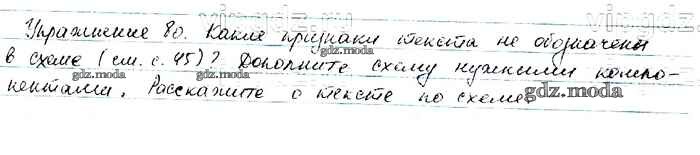 Упражнение 80. Какие признаки текста не обозначены
в схеме (см. с. 45)? Дополните схему нужными компо-
нентами. Расскажите о тексте по схеме.
vipgdz.ru
vipgdz.ru
gdz.moda
gdz.moda
gdz.moda
gdz.moda